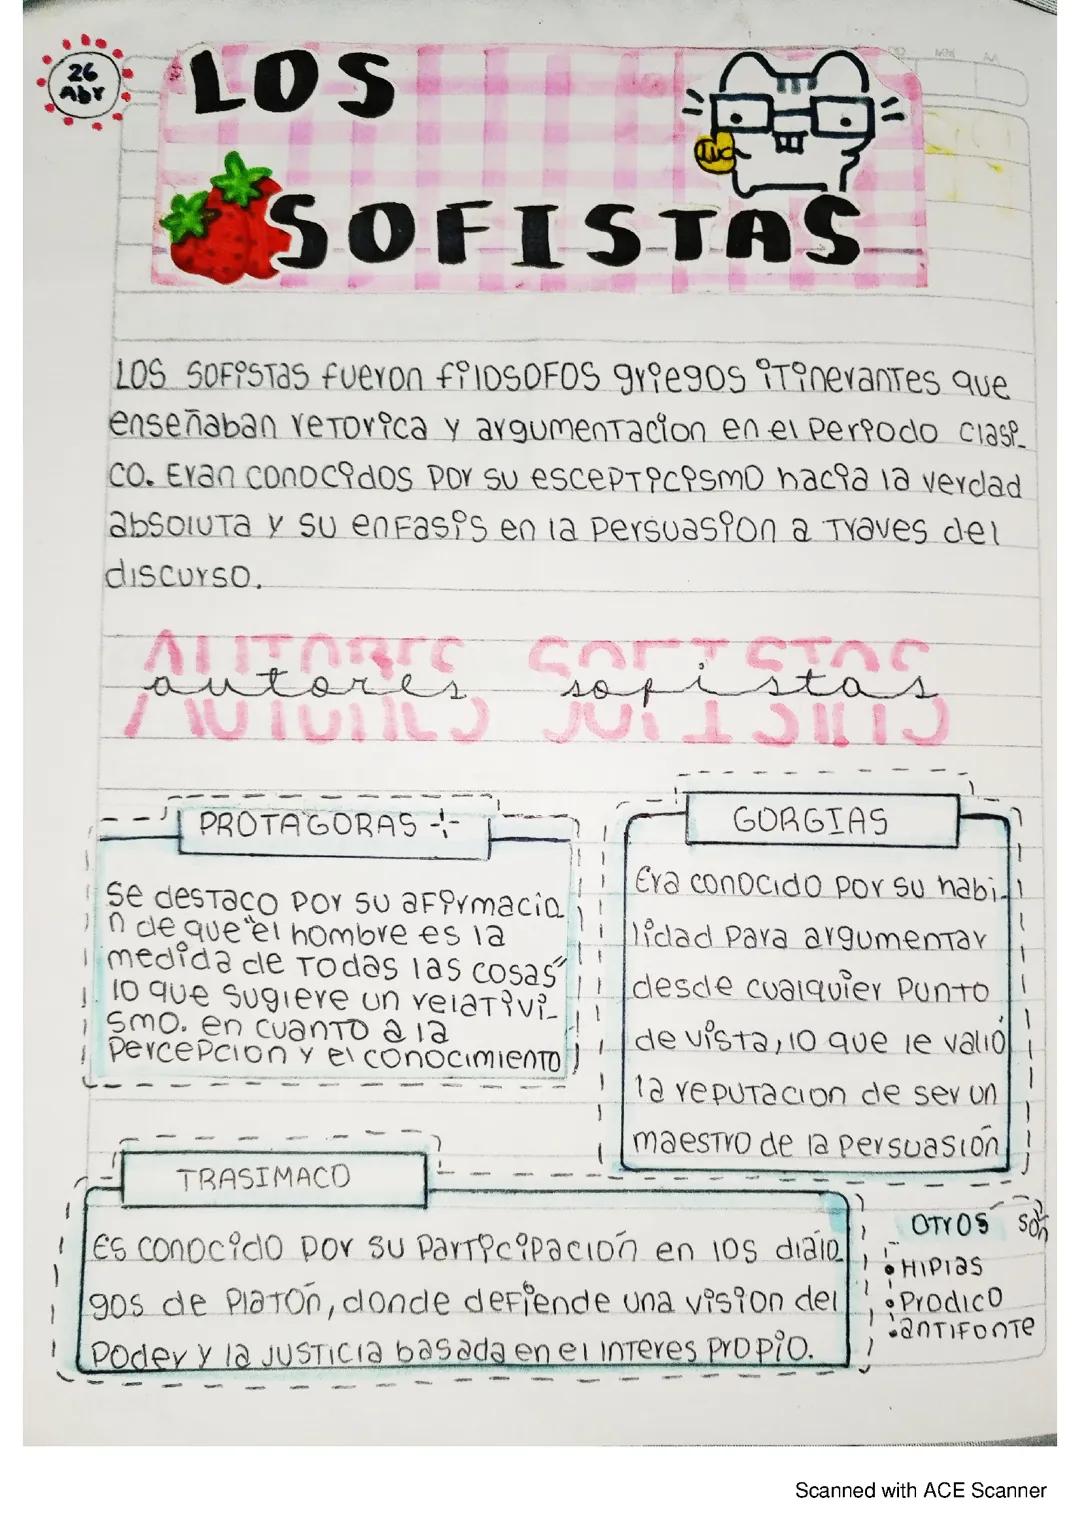 26
Abr
LOS
SOFISTAS
Los sofistas fueron filosofos griegos itinerantes que
enseñaban retorica y argumentacion en el periodo clasi_
co. Eran conocidos por su escepticismo hacia la verdad
absoluta y su enfasis en la persuasion a traves del
discurso.
autores sofistas
PROTAGORAS
se destaco por su afirmacio
n de que "el hombre es la
medida de todas las cosas"
lo que sugiere un relativi_
smo. en cuanto a la
percepcion y el conocimiento
GORGIAS
Era conocido por su habi-
lidad para argumentar
desde cualquier punto
de vista, lo que le valió
la reputacion de ser un
maestro de la persuasión
TRASIMACO
Es conocido por su participación en los dialo
gos de Platón, donde defiende una vision del
poder y la justicia basada en el interes propio.
otros son
• Hipias
• Prodico
• antifonte
Scanned with ACE Scanner